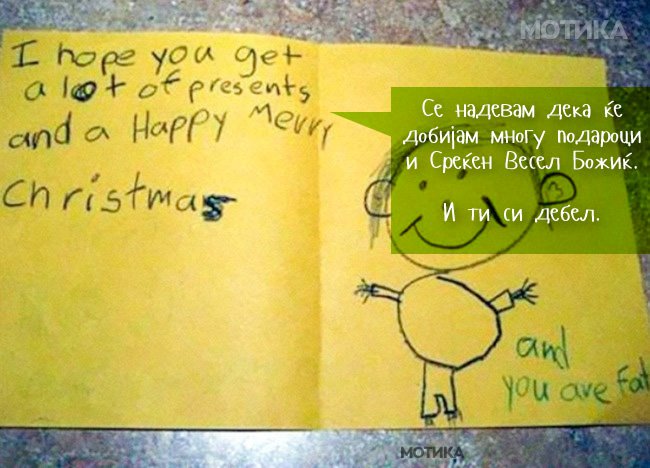 МОТИКА
I hope you get
a lot of presents
and a Happy Merry
Christmas
Се надевам дека ќе
добијам многу подароци
и Среќен Весел Божиќ.
И ти си дебел.
and
you are Fat
МОТИКА